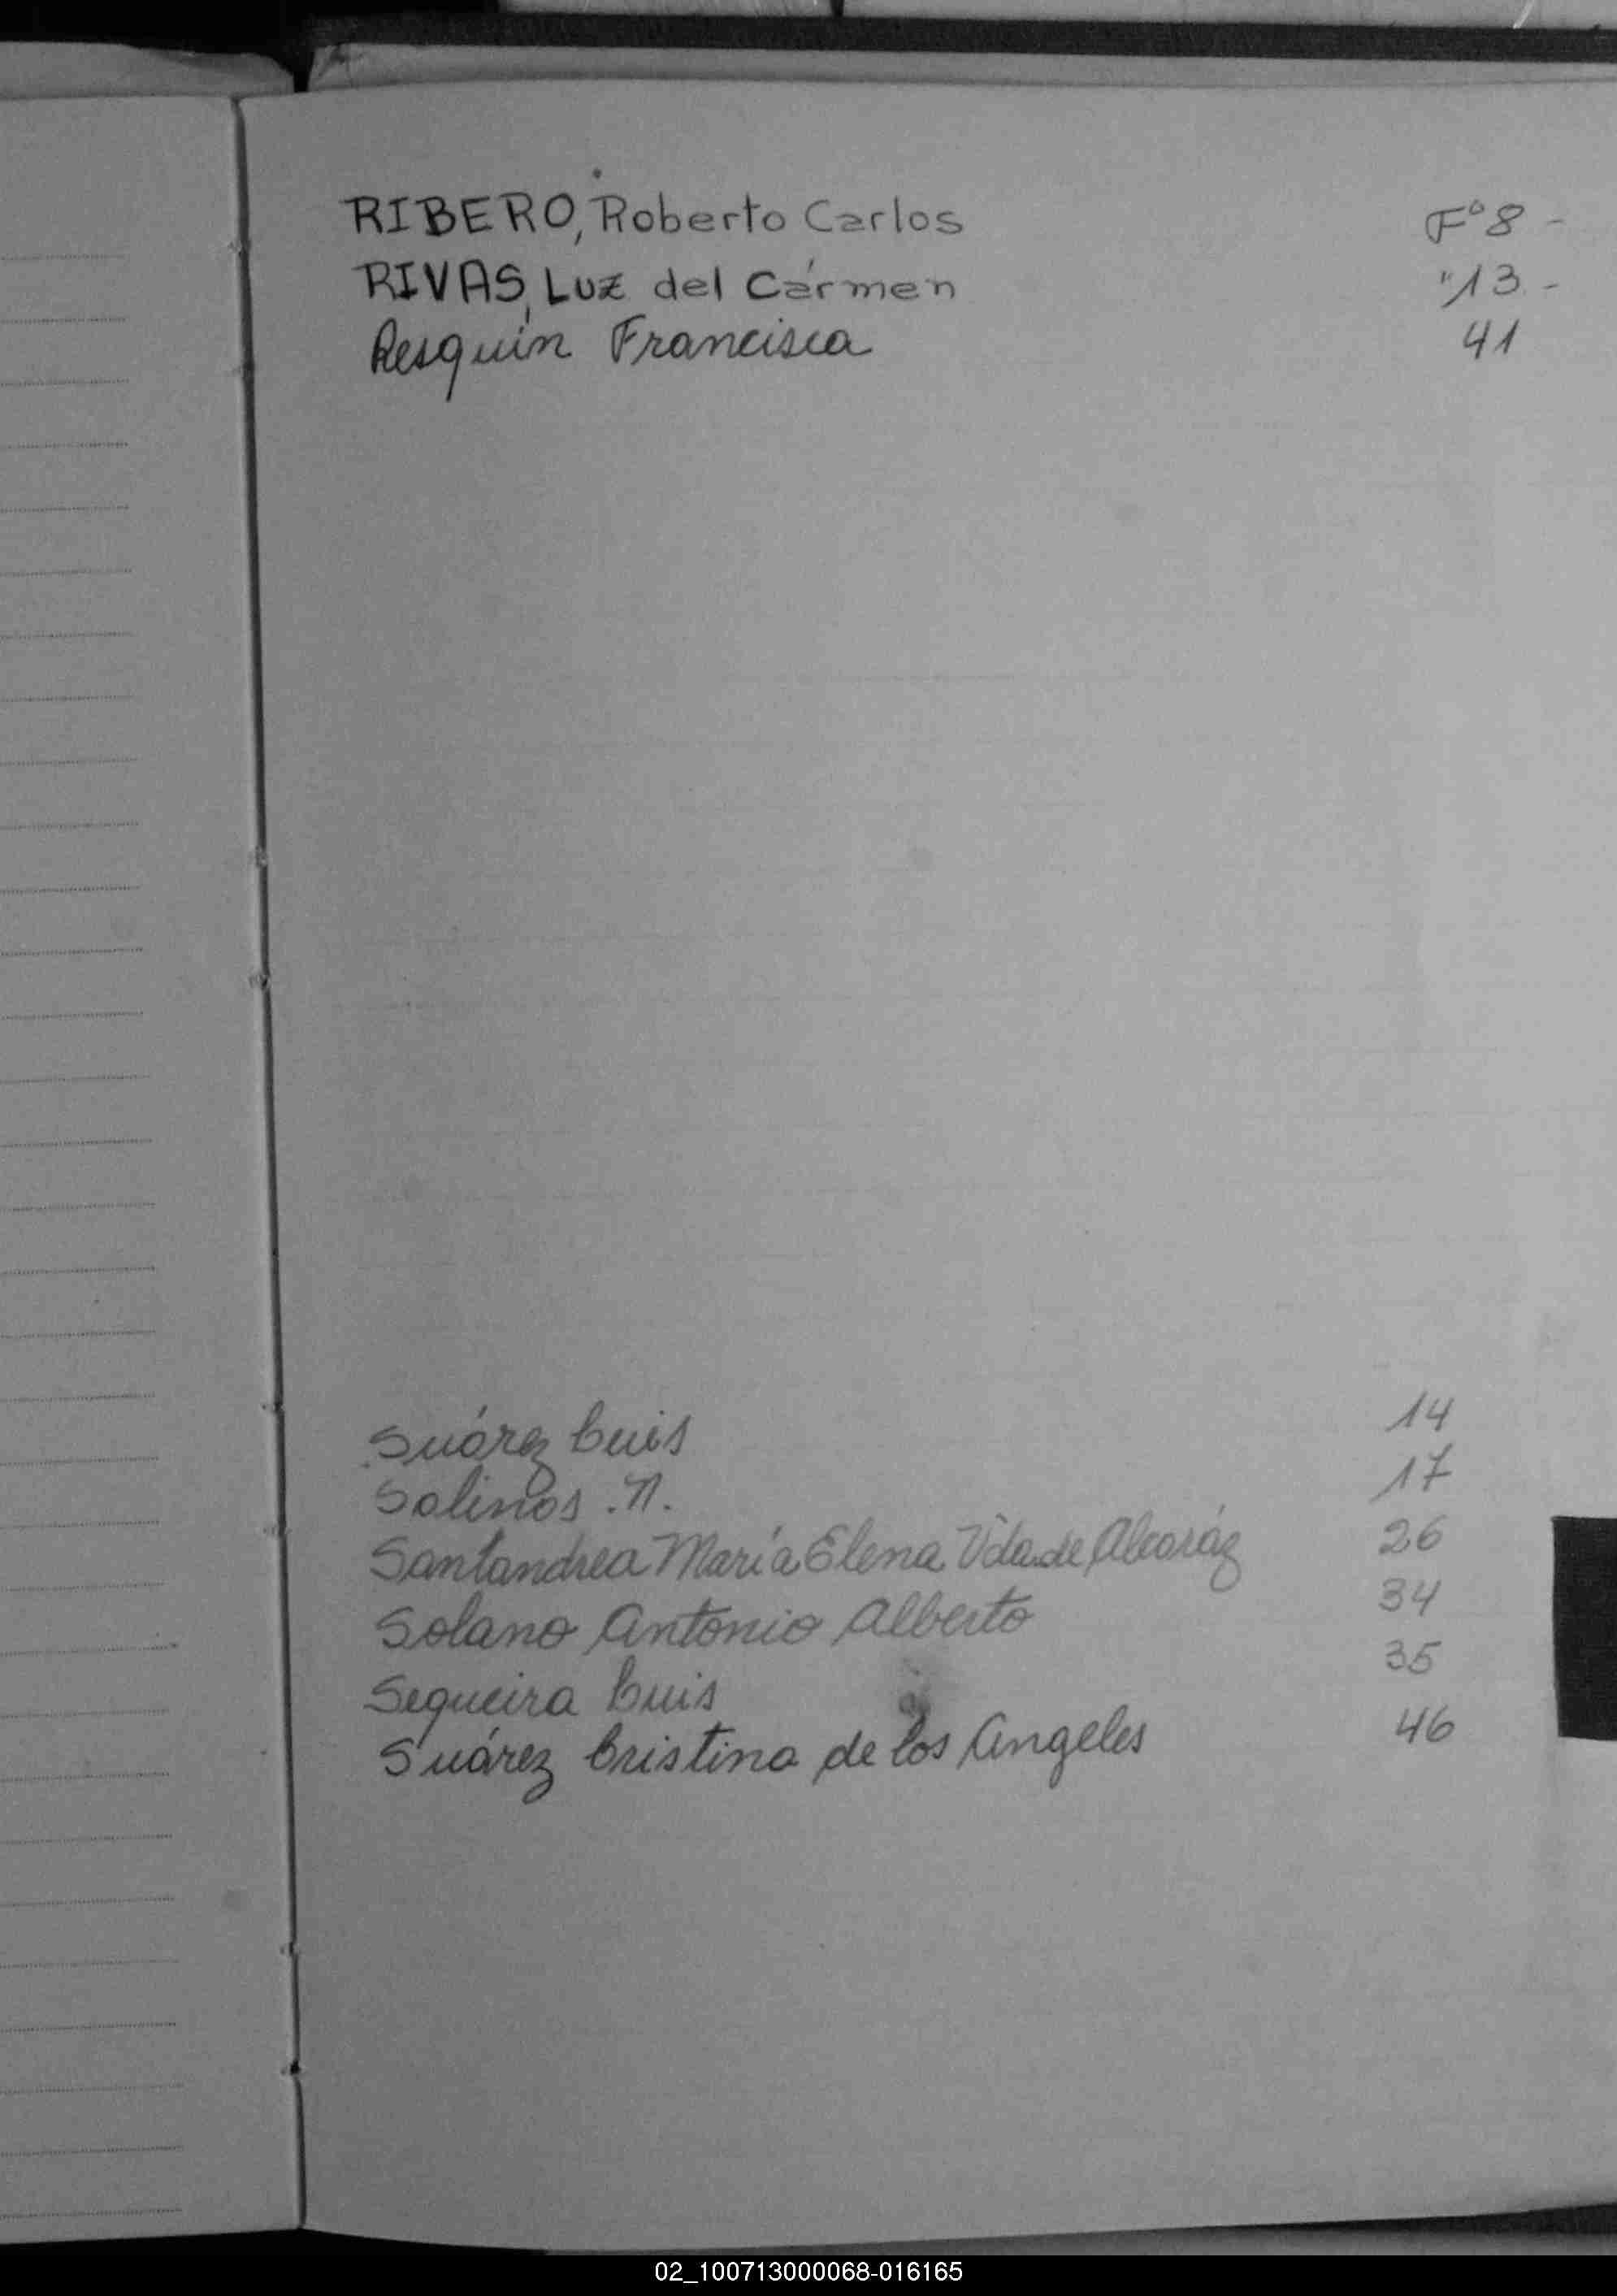 RIBERO, Roberto Carlos Fº 8 -
RIVAS, Luz del Cármen " 13 -
Resquín Francisca 41
Suárez Luis 14
Salinas .N. 17
Santandrea María Elena Vda de Alcaráz 26
Solano Antonio Alberto 34
Sequeira Luis 35
Suárez Cristina de los Angeles 46
02_100713000068-016165